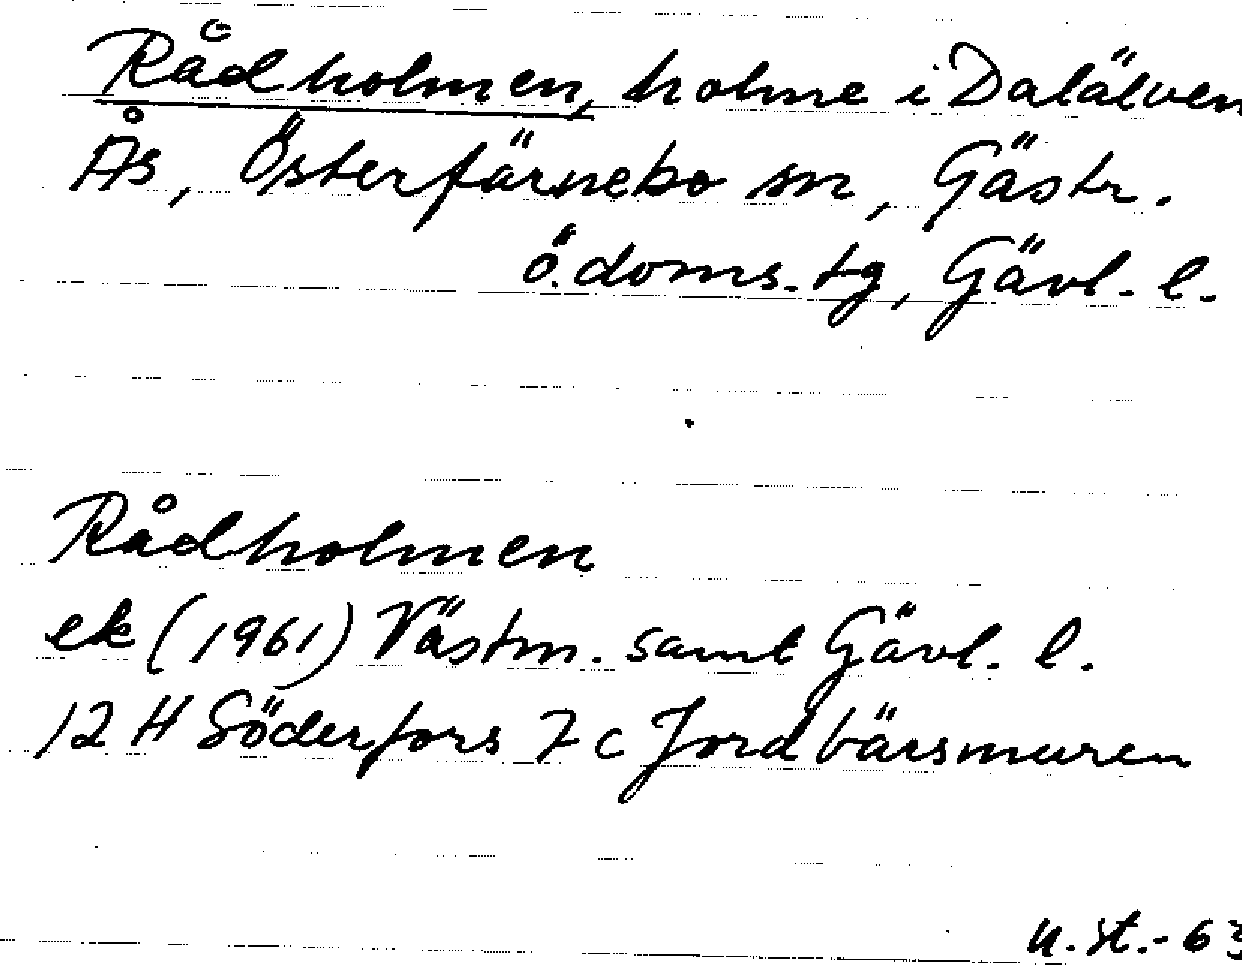 Rådholmen, holme i Dalälven
Ås, Österfärnebo sn, Gästr.
ö. doms. tg, Gävl. l.
Rådholmen
ek (1961) Västm. samt Gävl. l.
12 H Söderfors 7 c Jordbärsmuren
u. st.-63